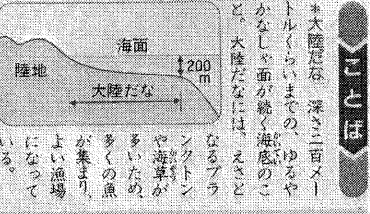 ことば
*大陸だな 深さ二百メー
トルくらいまでの、ゆるや
かなしゃ面が続く海底のこ
と。大陸だなには、えさと
なるプラ
ンクトン
や海草が
多いため、
多くの魚
が集まり、
よい漁場
になって
いる。
海面
陸地
200
m
大陸だな